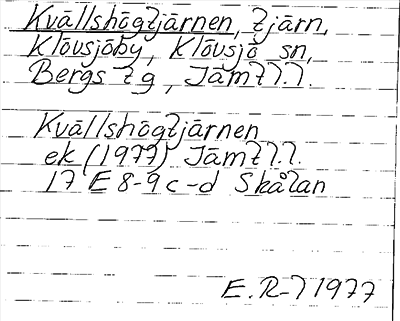 Kvällshögtjärnen, tjärn,
Klövsjöby, Klövsjö sn,
Bergs tg, Jämtl.l.
Kvällshögtjärnen
ek (1977) Jämtl.l.
17 E 8-9 c-d Skålan
E.R-l 1977